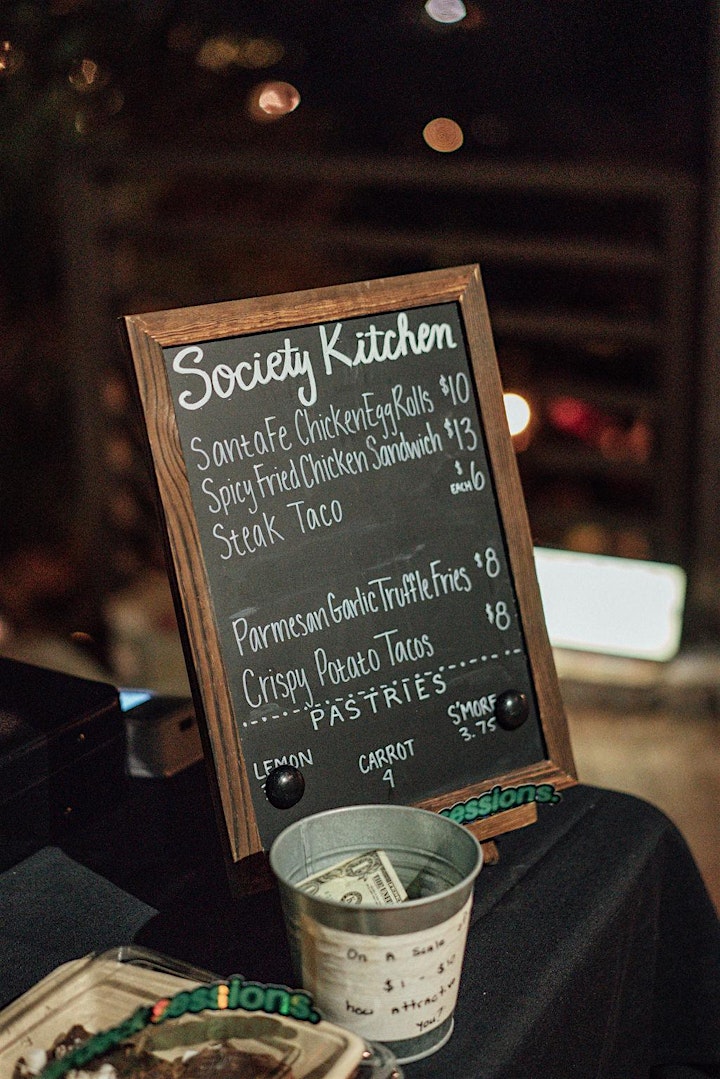 Society Kitchen
Santa Fe Chicken Egg Rolls $10
Spicy Fried Chicken Sandwich $13
Steak Taco EACH $6
Parmesan Garlic Truffle Fries $8
Crispy Potato Tacos $8
PASTRIES
LEMON
CARROT
4
S'MORE
3.75
sessions.
On A Scale
$1 - $10
how attractive
you?
sessions.